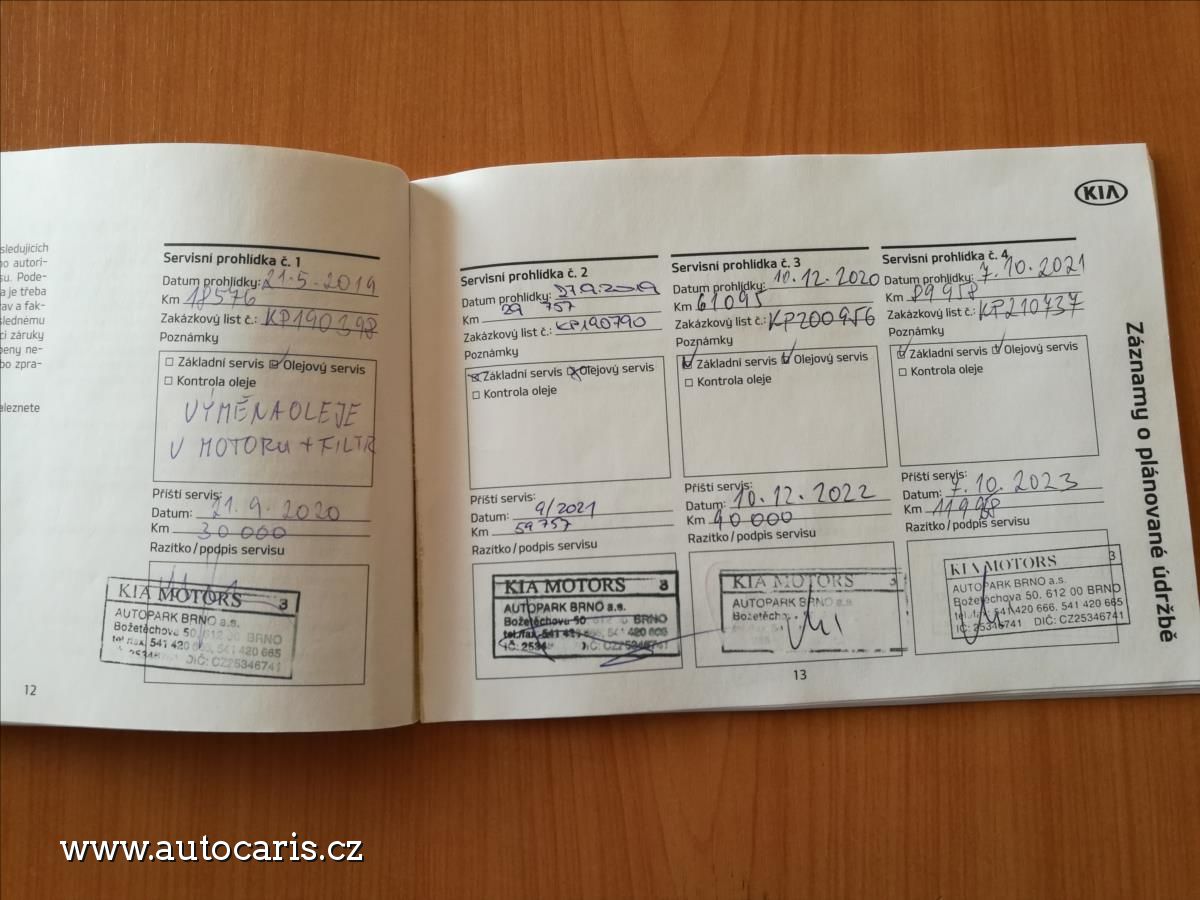 sledujících
no autori-
su. Pode-
a je třeba
rav a fak-
slednému
ci záruky
beny ne-
bo zpra-
aleznete
12
Servisní prohlídka č. 1
Datum prohlídky: 21.5.2019
Km 18576
Zakázkový list č.: KP190398
Poznámky
Základní servis Olejový servis
Kontrola oleje
VÝMĚNA OLEJE
V MOTORU + FILTR
Příští servis:
Datum: 21.9.2020
Km 30 000
Razítko/podpis servisu
KIA MOTORS 3
AUTOPARK BRNO a.s.
Božetěchova 50, 612 00 BRNO
tel./fax. 541 420 666, 541 420 665
DIČ: CZ25346741
Servisní prohlídka č. 2
Datum prohlídky: 27.9.2019
Km 29 757
Zakázkový list č.: KP190790
Poznámky
Základní servis Olejový servis
Kontrola oleje
Příští servis:
Datum: 9/2021
Km 59 757
Razítko/podpis servisu
KIA MOTORS 3
AUTOPARK BRNO a.s.
Božetěchova 50 BRNO
DIČ: CZ25346741
Servisní prohlídka č. 3
Datum prohlídky: 10.12.2020
Km 61095
Zakázkový list č.: KP200956
Poznámky
Základní servis Olejový servis
Kontrola oleje
Příští servis:
Datum: 10.12.2022
Km 90 000
Razítko/podpis servisu
KIA MOTORS 3
AUTOPARK BRNO a.s.
13
Servisní prohlídka č. 4
Datum prohlídky: 7.10.2021
Km 89958
Zakázkový list č.: KP210737
Poznámky
Základní servis Olejový servis
Kontrola oleje
Příští servis:
Datum: 7.10.2023
Km
Razítko/podpis servisu
KIA MOTORS 3
AUTOPARK BRNO a.s.
Božetěchova 50, 612 00 BRNO
tel./fax. 541 420 666, 541 420 665
IČ: 25346741 DIČ: CZ25346741
KIA
Záznamy o plánované údržbě
www.autocaris.cz